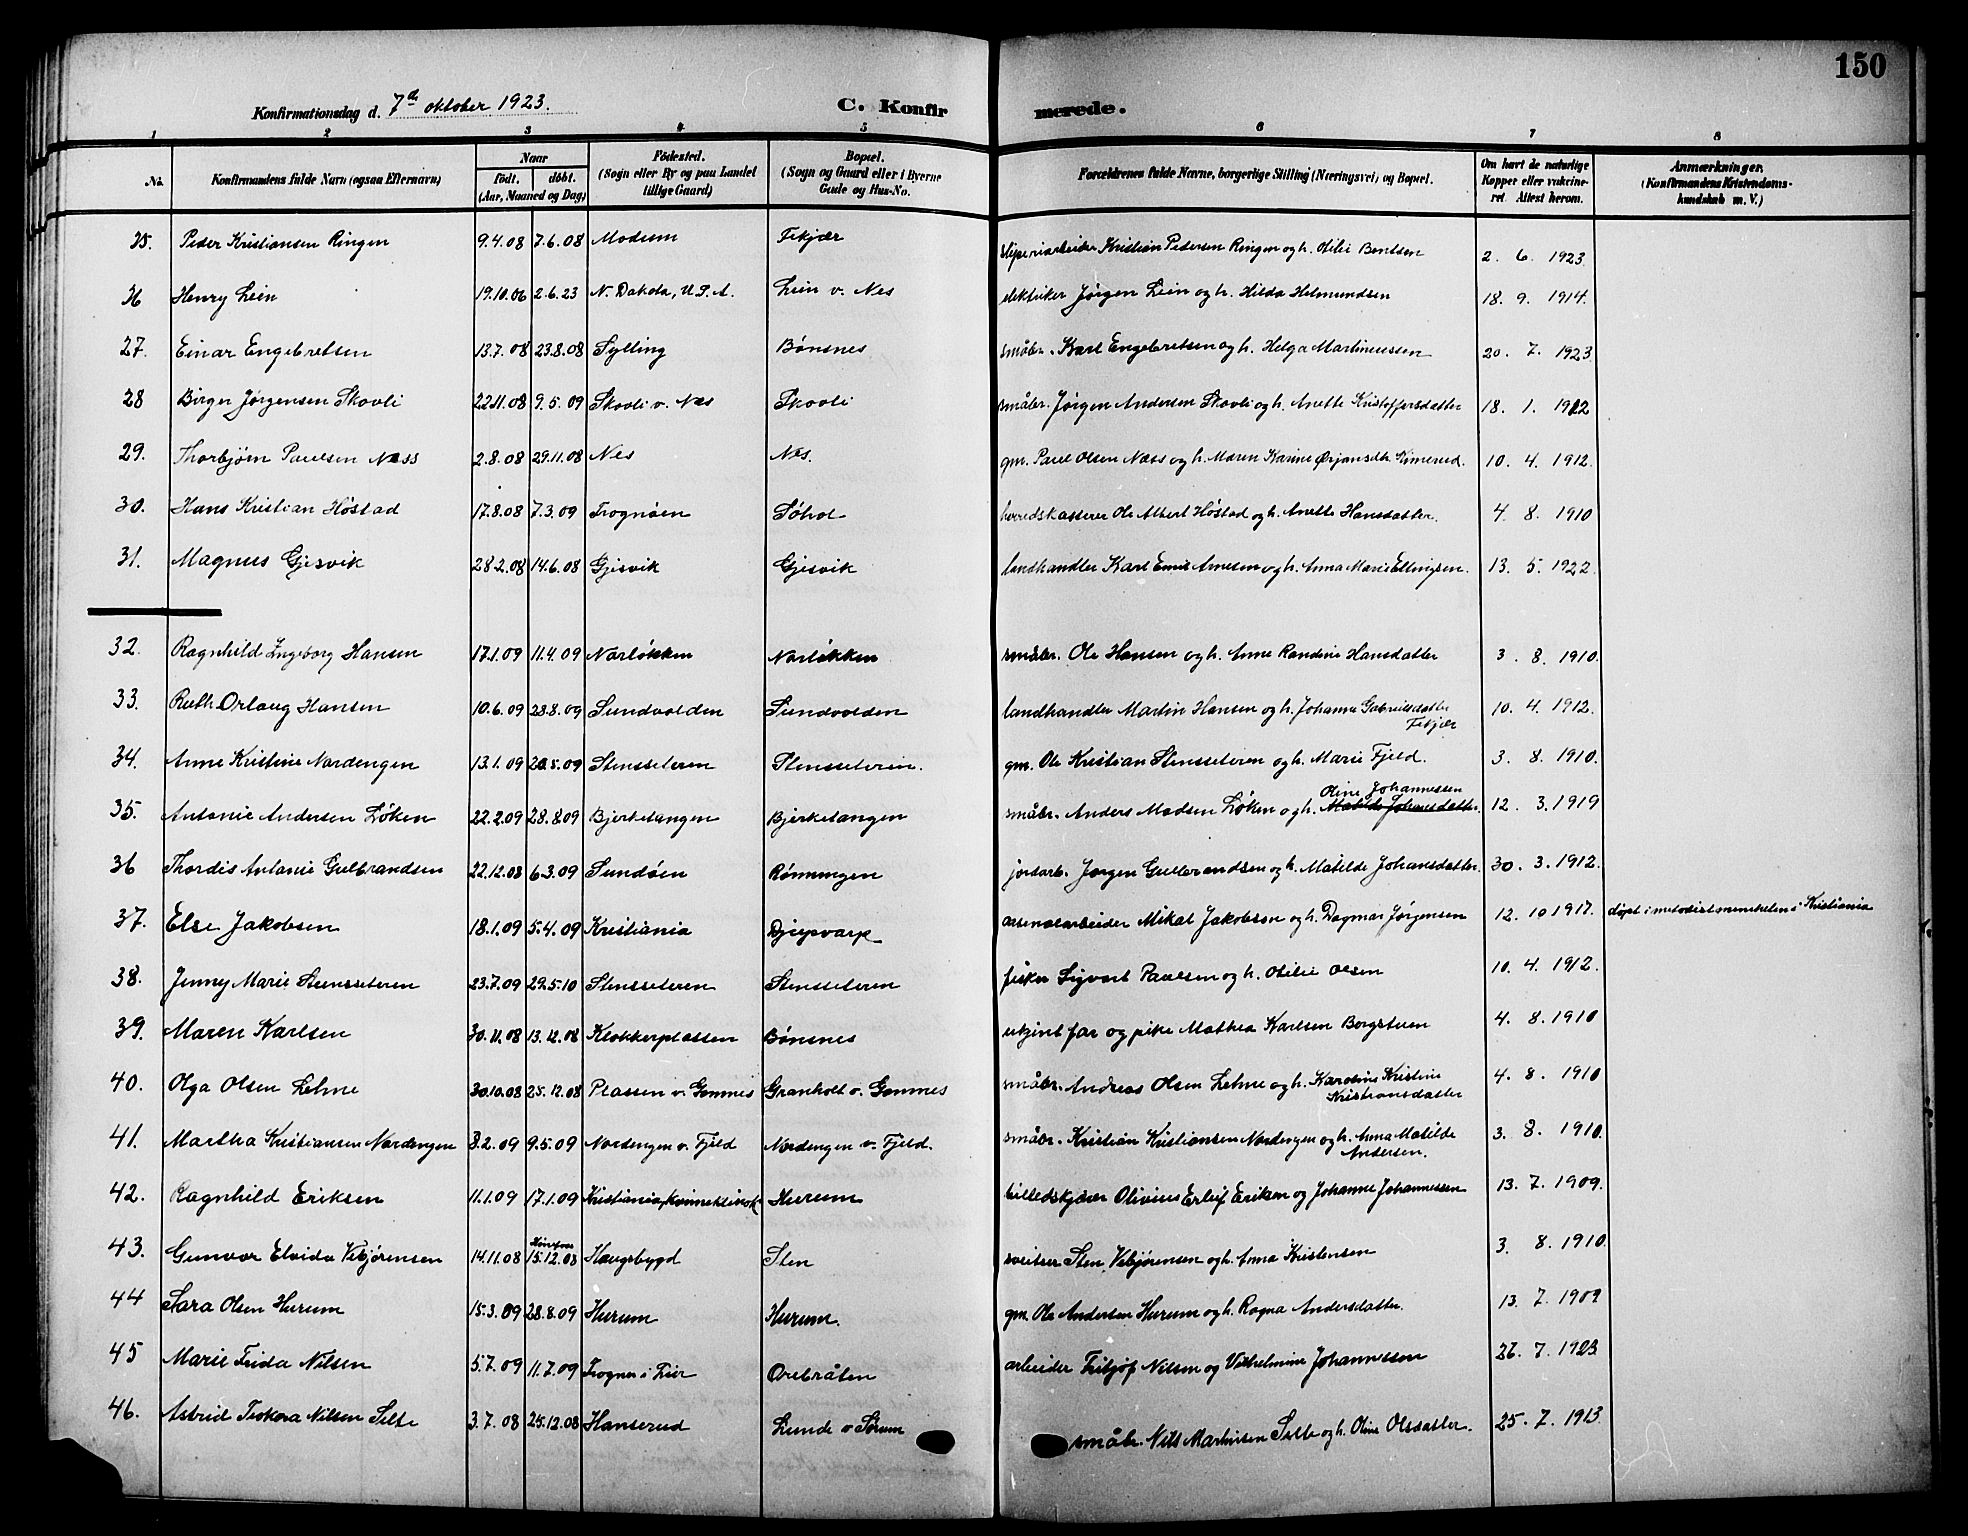 150
Konfirmationsdag d. 7de oktober 1923. C. Konfirmerede.
1 2 3 4 5 6 7 8
No. Konfirmandens fulde Navn (ogsaa Efternavn) Naar født. døbt. (Aar, Maaned og Dag) Fødested. (Sogn eller By og paa Landet tillige Gaard) Bopæl. (Sogn og Gaard eller i Byerne Gade og Hus-No. Forældrenes fulde Navne, borgerlige Stilling (Næringsvei) og Bopæl. Om havt de naturlige Kopper eller vakcineret. Attest herom. Anmærkninger. (Konfirmandens Kristendomskundskab m. V.)
25. Peder Kristiansen Ringen 9.4.08 7.6.08 Modum Fekjær sliperiarbeider Kristian Pedersen Ringen og h. Otilie Bentsen 2. 6. 1923
26 Henry Lein 19.10.06 2.6.23 N. Dakota, U.S.A. Lein v. Nes elektriker Jørgen Lein og h. Hilda Helmundsen 18. 9. 1914.
27. Einar Engebretsen 13.7.08 23.8.08 Sylling Bønsnes småbr. Karl Engebretsen og h. Helga Martinussen 20. 7. 1923
28 Birger Jørgensen Skovli 22.11.08 9.5.09 Skovli v. Nes Skovli småbr. Jørgen Andersen Skovli og h. Anette Kristoffersdatter 18. 1. 1922
29. Thorbjørn Paulsen Næss 2.8.08 29.11.08 Nes Nes. gm. Paul Olsen Næss og h. Maren Karine Ørjansdtr. Kimerud. 10. 4. 1912.
30. Hans Kristian Høstad 17.8.08 7.3.09 Frognøen Søhol herredskasserer Ole Albert Høstad og h. Anette Hansdatter. 4. 8. 1910
31. Magnus Gjesvik 28.2.08 14.6.08 Gjesvik Gjesvik landhandler Karl Emil Arnesen og h. Anna Marie Ellingsen. 13. 5. 1922.
32. Ragnhild Ingeborg Hansen 17.1.09 11.4.09 Narløkken Narløkken småbr. Ole Hansen og h. Anne Randine Hansdatter 3. 8. 1910.
33. Ruth Orlaug Hansen 10.6.09 28.8.09 Sundvolden Sundvolden landhandler Martin Hansen og h. Johanne Gabrielsdatter Fekjær 10. 4. 1912.
34. Anne Kristine Nordengen 13.1.09 20.5.09 Stensseteren Stensseteren. gm. Ole Kristian Stensseteren og h. Marie Fjeld. 3. 8. 1910.
35. Antonie Andersen Løken 22.2.09 28.8.09 Bjerketangen Bjerketangen småbr. Anders Madsen Løken og h. Oline Johannessen Matilde Johansdatter. 12. 3. 1919
36 Thordis Antonie Gulbrandsen 22.12.08 6.3.09 Sundøen Rønningen jordarb. Jørgen Gulbrandsen og h. Matilde Johansdatter. 30. 3. 1912.
37. Else Jakobsen 18.1.09 5.4.09 Kristiania Djupvarp arsenalarbeider Mikal Jakobsen og h. Dagmar Jørgensen 12. 10 1917. døpt i metodistmenigheten i Kristiania
38. Jenny Marie Stensseteren 23.7.09 29.5.10 Stensseteren Stensseteren fisker Sigvart Paulsen og h. Otilie Olsen 10. 4. 1912.
39. Maren Karlsen 30.11.08 13.12.08 Klokkerplassen Bønsnes ukjent far og pike Mathea Karlsen Borgstuen 4. 8. 1910
40. Olga Olsen Lehne 30.10.08 25.12.08 Plassen v. Gomnes Granholt v. Gomnes småbr. Andreas Olsen Lehne og h. Karoline Kristine Kristiansdatter 4. 8. 1910
41. Martha Kristiansen Nordengen 3.2.09 9.5.09 Nordengen v. Fjeld Nordengen v. Fjeld. småbr. Kristian Kristiansen Nordengen og h. Anna Matilde Andersen. 3. 8. 1910.
42. Ragnhild Eriksen 11.1.09 17.1.09 Kristiania, kvinneklinik Hurum billedskjærer Olivius Erleif Eriksen og Johanne Johannessen 13. 7. 1909.
43. Gunvor Elvida Vebjørensen 14.11.08 Hønefoss 15.12.08 Haugsbygd Sten sveitser Sten Vebjørensen og h. Anna Kristensen 3. 8. 1910.
44 Sara Olsen Hurum 15.3.09 28.8.09 Hurum Hurum. gm. Ole Andersen Hurum og h. Ragna Andersdatter. 13. 7. 1909
45 Marie Frida Nilsen 5.7.09 11.7.09 Frogner i Lier Orebråten arbeider Fritjof Nilsen og Vilhelmine Johannessen 26. 7. 1923
46. Astrid Teodora Nilsen Selte 3.7.08 25.12.08 Hanserud Lunde v Sørum småbr. Nils Martinsen Selte og h. Oline Olsdatter. 25. 7. 1913.